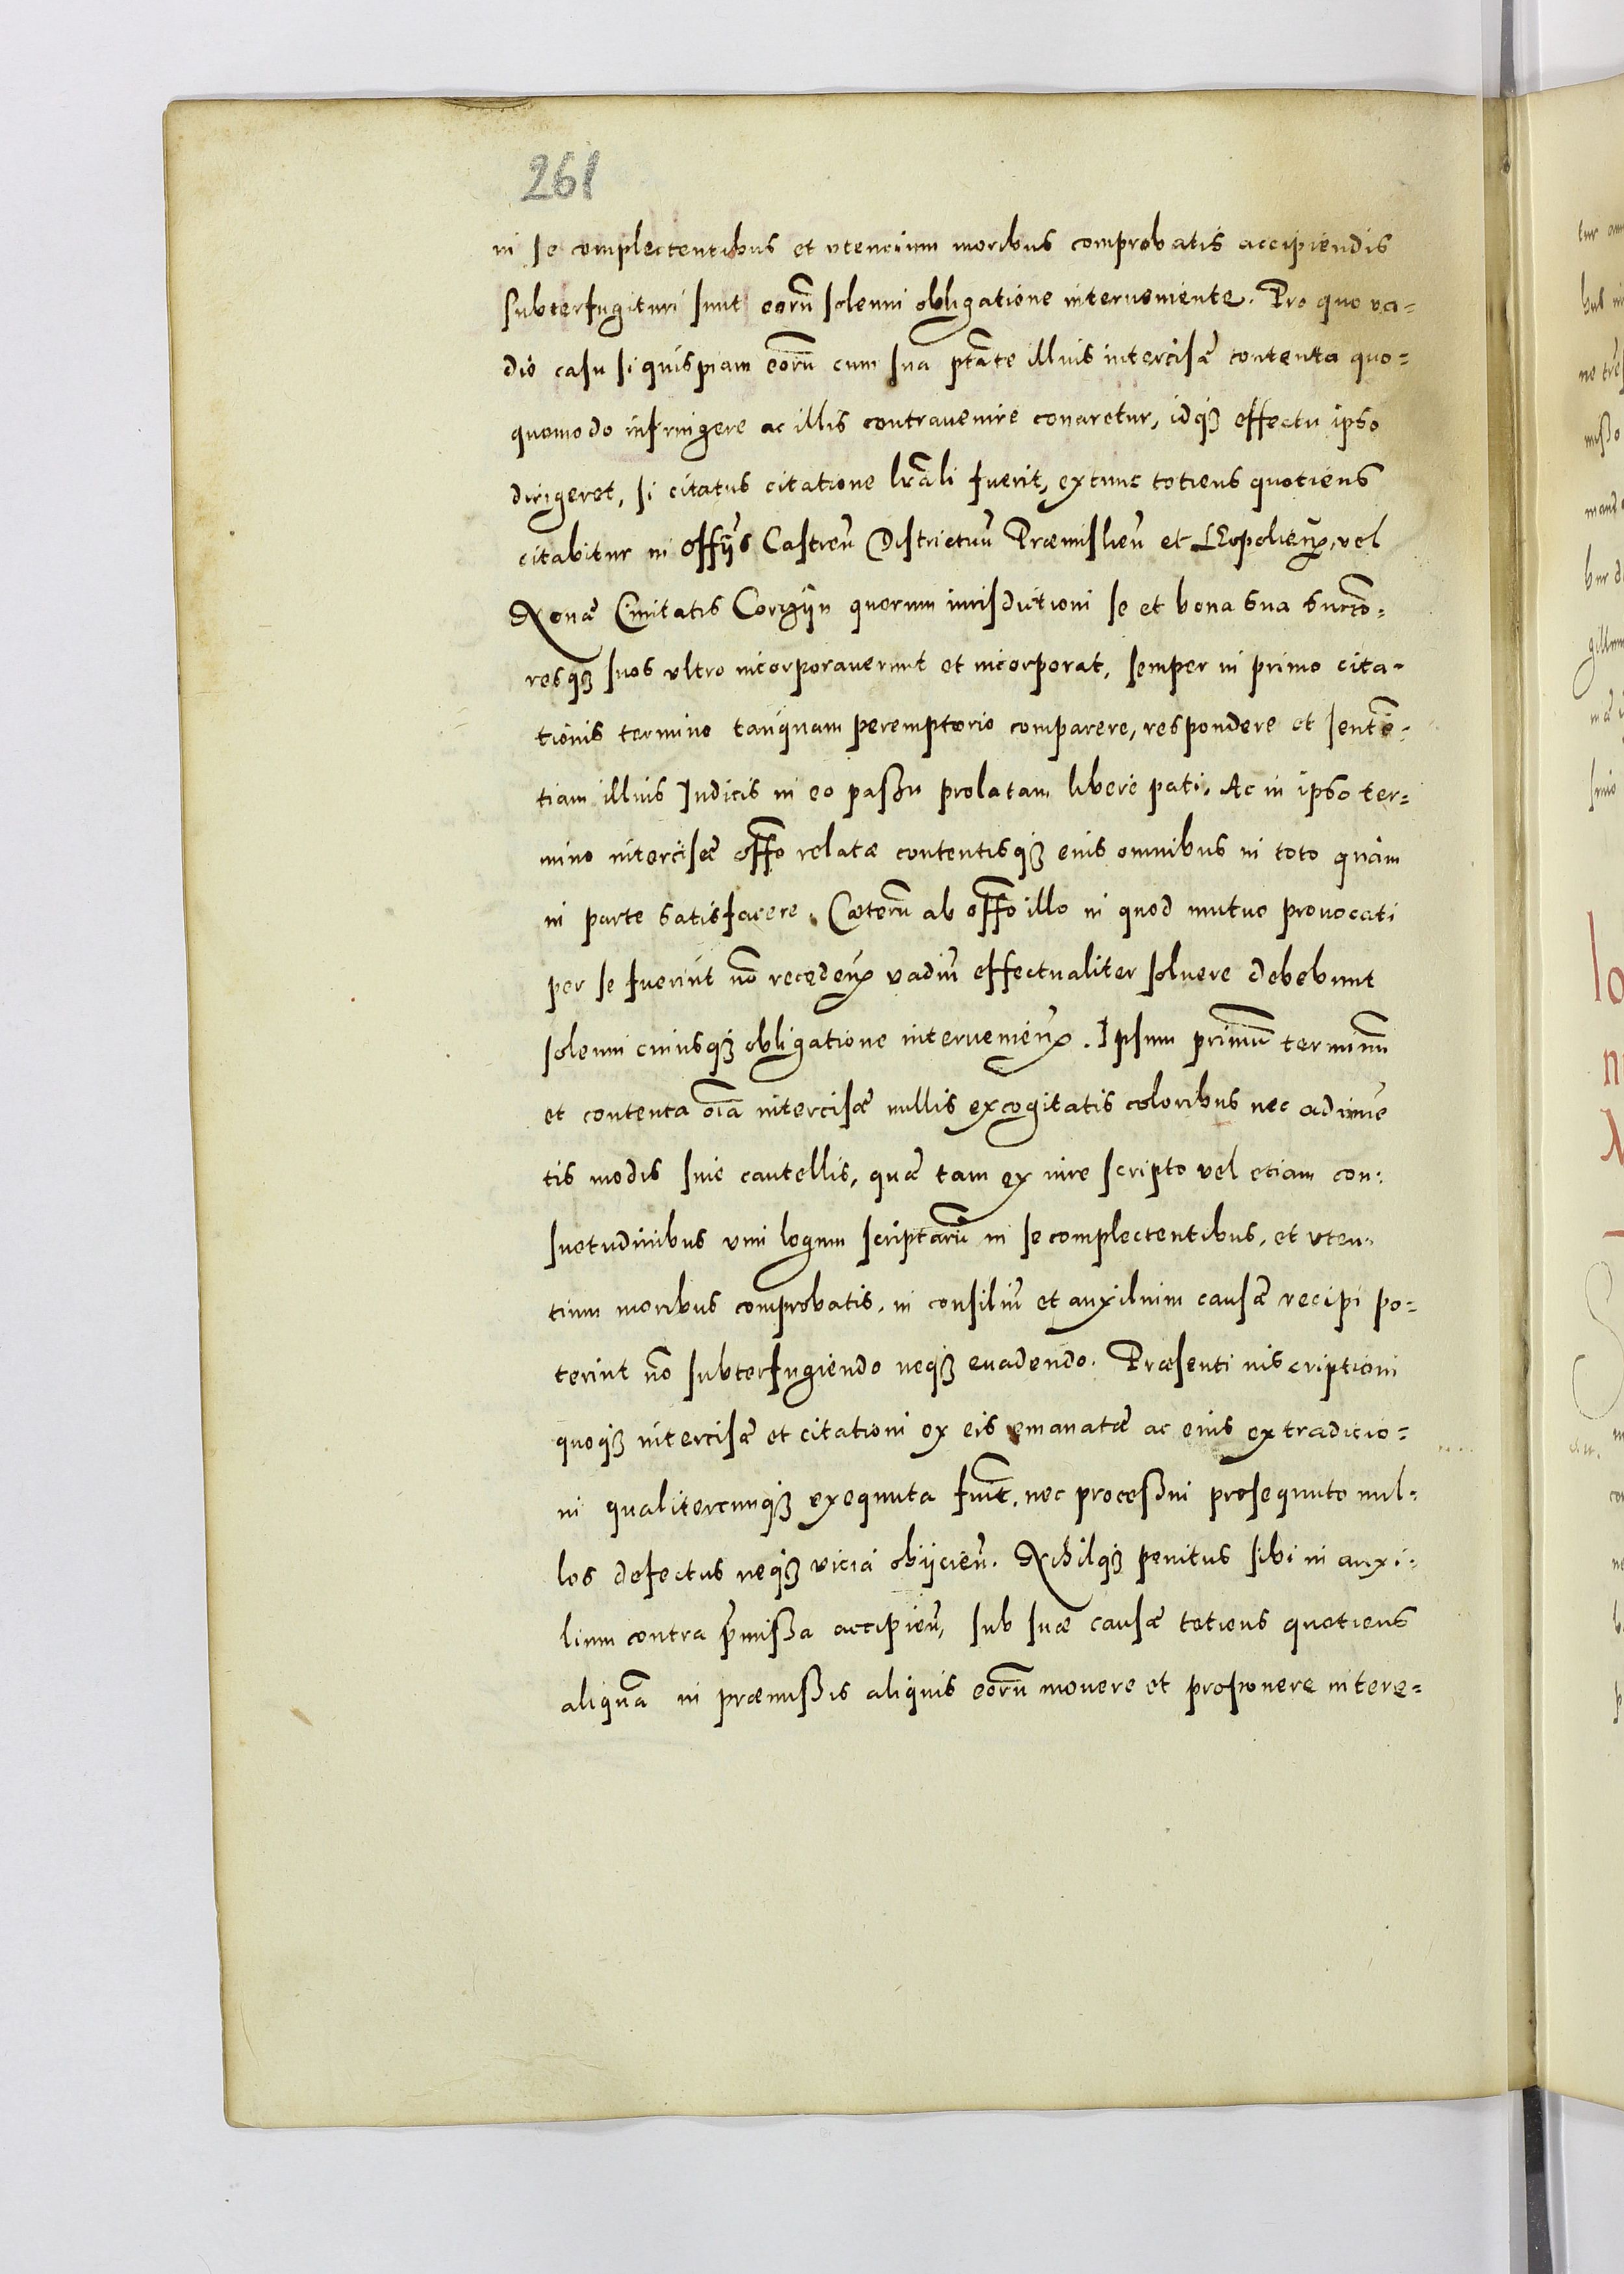 261
in se complectentibus et vtencium moribus comprobatis accipiendis
subterfugituri sunt eorũ solenni obligatione interueniente. Pro quo va=
dio casu si quispiam eorũ cum sua ptãte illius intercisæ contenta quo=
quomodo infringere ac illis contrauenire conaretur, idq₃ effectu ipso
dirigeret, si citatus citatione lrãli fuerit, extunc totiens quotiens
citabitur in offijs Castreñ Districtuũ Præmislieñ et Leopolieñ, vel
Ciuitatis quorum iurisdictioni se et bona sua succõ=
resq₃ suos vltro incorporauerunt et incorporat, semper in primo cita=
tionis termino tanquam peremptorio comparere, respondere et sentẽ=
tiam illius Iudicis in eo passu prolatam libere pati. Ac in ipso ter=
mino intercisæ offõ relatæ contentisq₃ eius omnibus in toto quàm
in parte satisfacere. Cæterũ ab offõ illo in quod mutuo prouocati
per se fuerint nõ recedeñ vadiũ effectualiter soluere debebunt
solenni cuiusq₃ obligatione interuenieñ. Ipsum primũ terminũ
et contenta oĩa intercisæ nullis excogitatis coloribus nec adinuẽ
tis modis siue cautellis, quæ tam ex iure scripto vel etiam con=
suetudinibus vim legum scriptarũ in se complectentibus, et vten=
tium moribus comprobatis, in consiliũ et auxilium causæ recipi po=
terint nõ subterfugiendo neq₃ euadendo. Præsenti inscriptioni
quoq₃ intercisæ et citationi ex eis emanatæ ac eius extradicio=
ni qualitercunq₃ exequuta fuit, nec processui prosequuto nul=
los defectus neq₃ vicia obijcieñ. Nihilq₃ penitus sibi in auxi=
lium contra p̃missa accipieñ, sub suæ causæ totiens quotiens
aliquã in præmissis aliquis eorũ mouere et proponere intere=